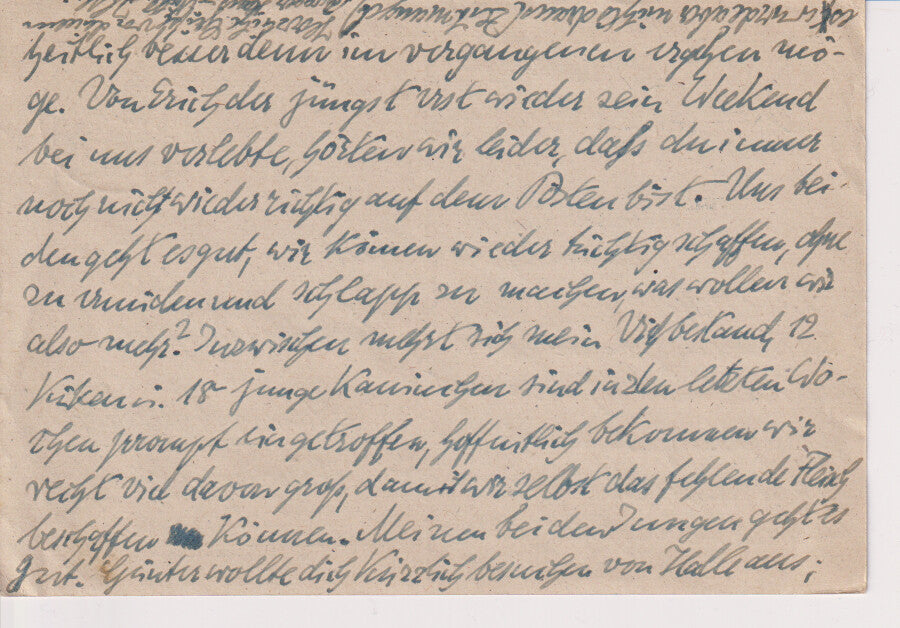 heitlich besser denn im vergangenen ergehen mö-
ge. Von Erich der jüngst erst wieder sein Weekend
bei uns verlebte, hörten wir leider, daß du immer
noch nicht wieder richtig auf dem Posten bist. Uns bei
den geht es gut, wir können wieder tüchtig schaffen, ohne
zu ermüden und schlapp zu machen, was wollen wir
also mehr? Inzwischen mehrt sich mein Viehbestand, 12
Küken u. 18 junge Kaninchen sind in den letzten Wo-
chen prompt eingetroffen, hoffentlich bekommen wir
recht viel davon groß, damit wir selbst das fehlende Fleisch
beschaffen können. Meinen beiden Jungen geht es
gut. Günter wollte dich kürzlich besuchen von Halle aus,